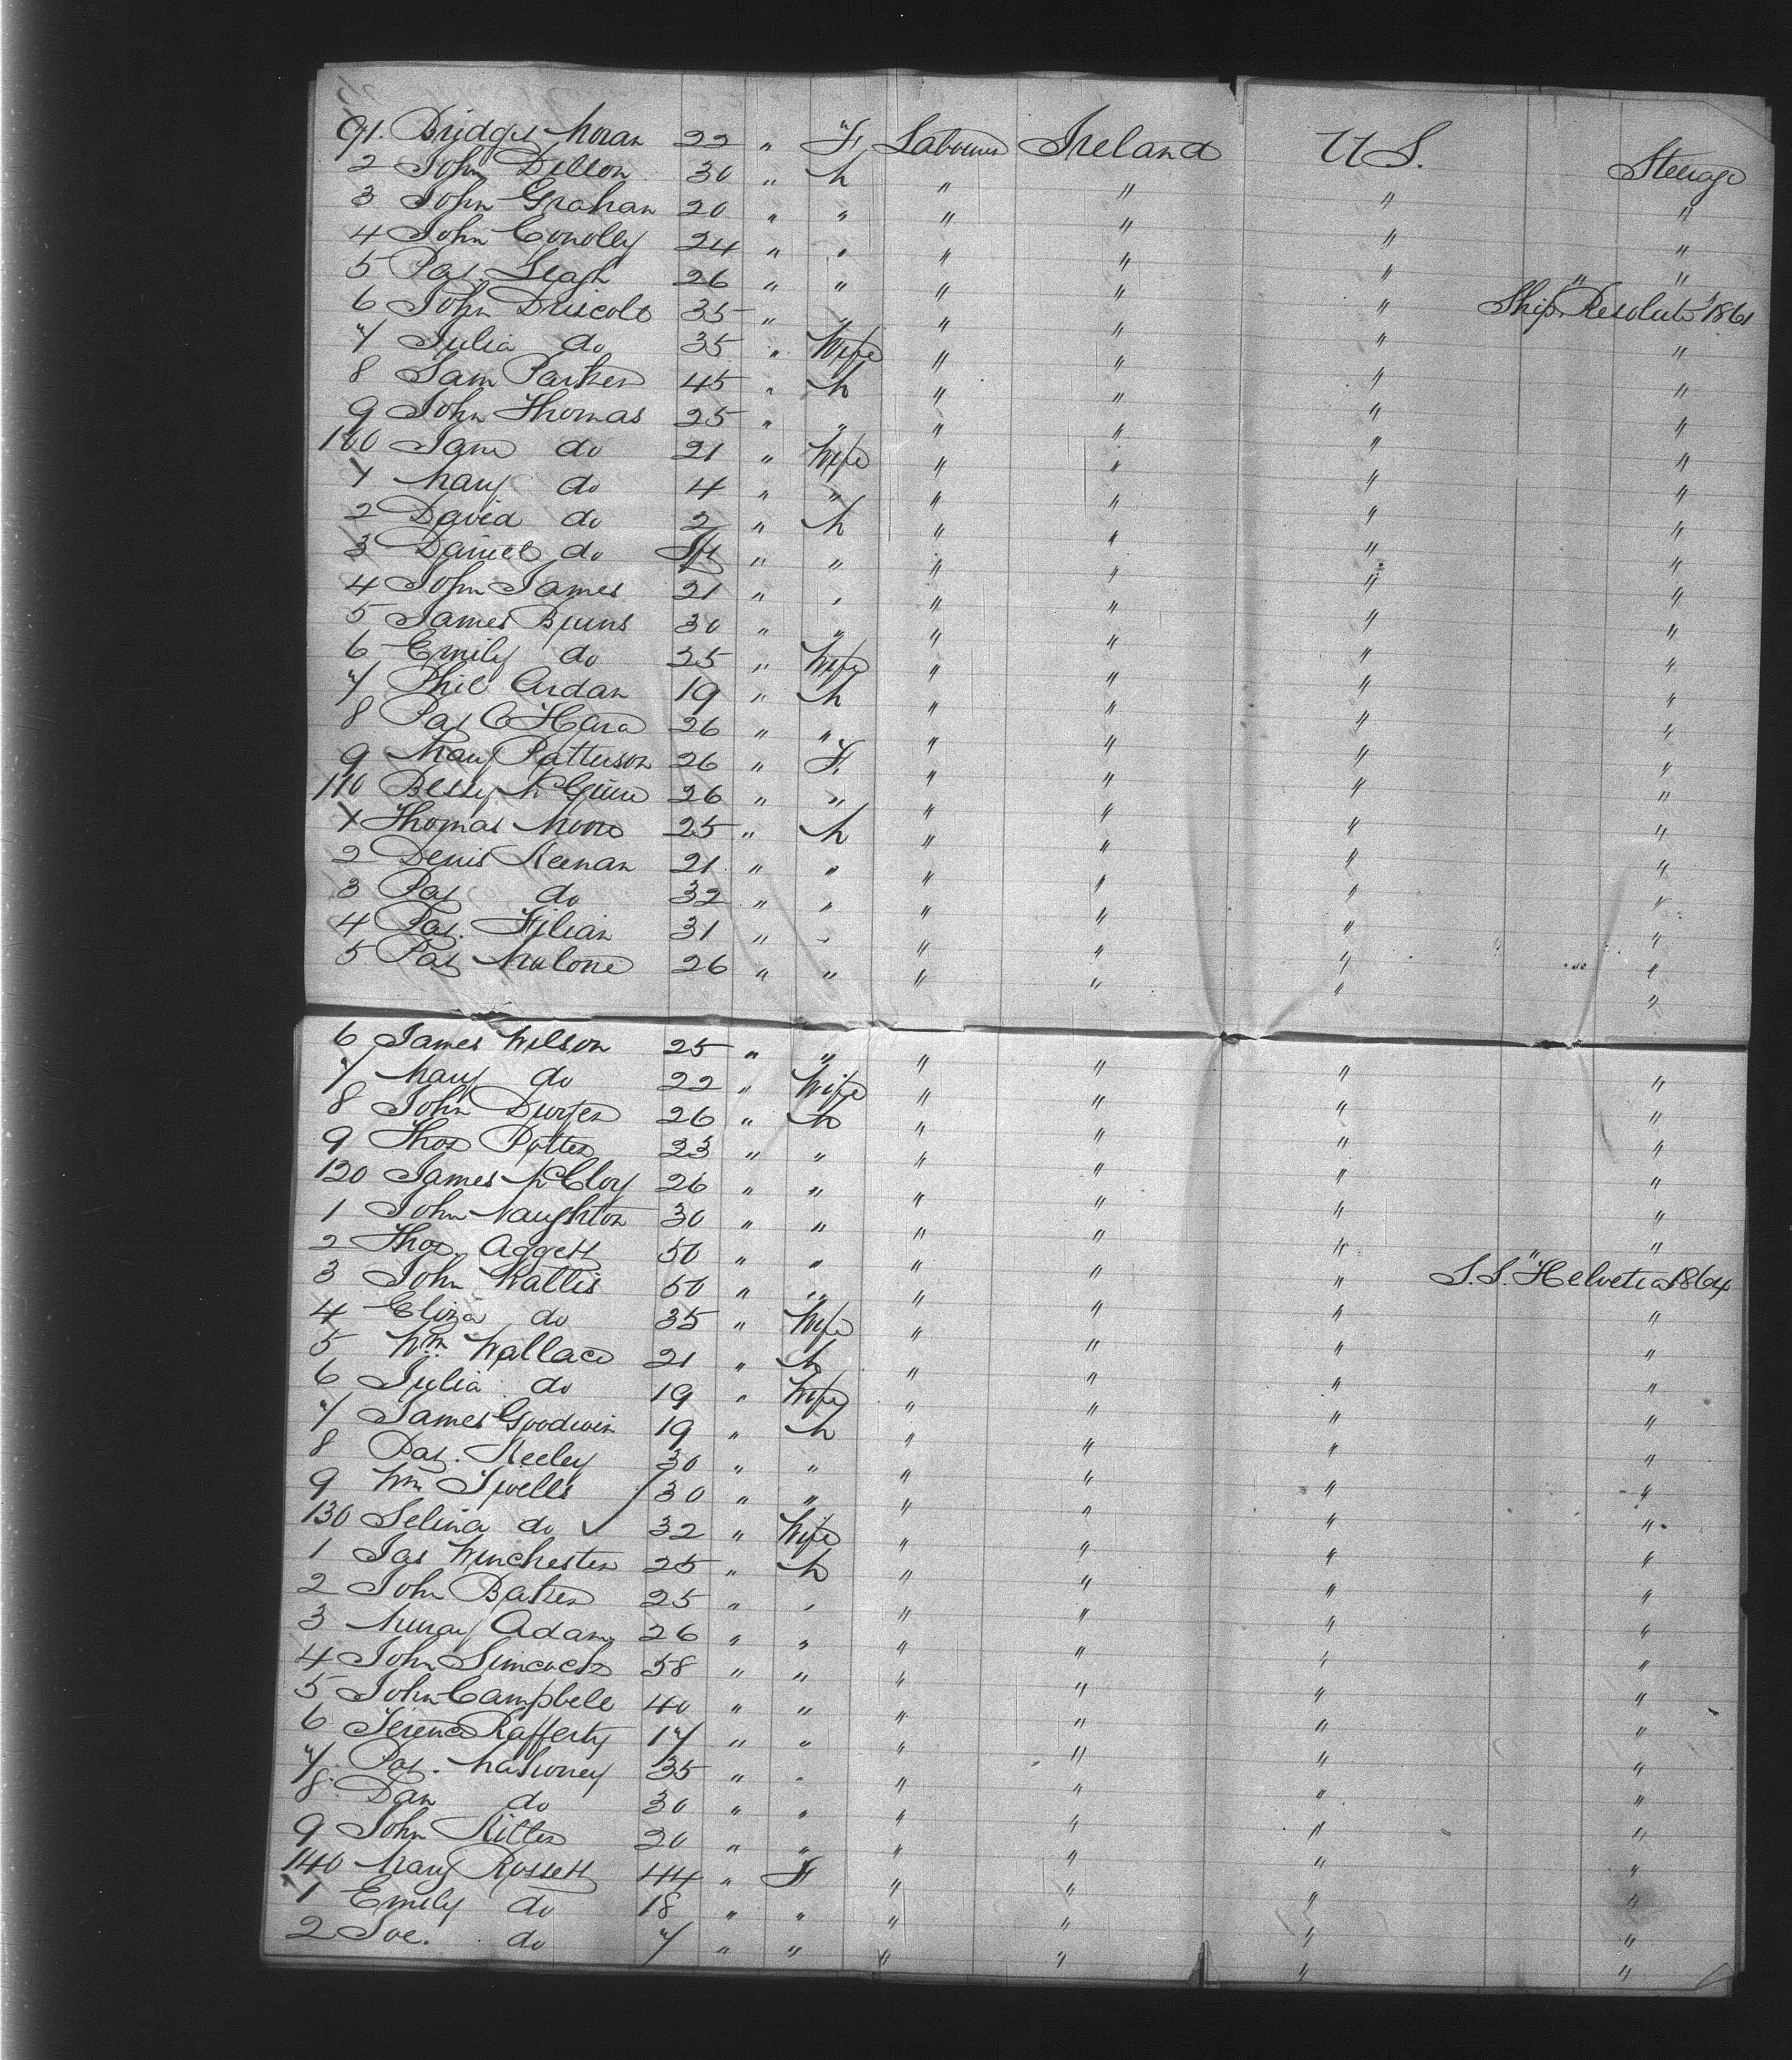 91. Bridget Moran 22 " F Labourer Ireland U S. Steerage
2 John Dillon 30 " M " " " "
3 John Graham 20 " " " " " "
4 John Conolly 24 " " " " " "
5 Pat. Leagh 26 " " " " " "
6 John Driscoll 35 " " " " " Ship "Resolute" 1861
7 Julia do 35 " Wife " " " "
8 Sam Parker 45 " M " " " "
9 John Thomas 25 " " " " " "
100 Jane do 21 " Wife " " " "
1 Mary do 4 " " " " " "
2 David do 2 " M " " " "
3 Daniel do " " " " " "
4 John James 21 " " " " " "
5 James Burns 30 " " " " " "
6 Emily do 25 " Wife " " " "
7 Phil Ardan 19 " M " " " "
8 Pat O Hara 26 " " " " " "
9 Mary Patterson 26 " F. " " " "
110 Bessy McGuire 26 " " " " " "
1 Thomas Moore 25 " M " " " "
2 Denis Keenan 21 " " " " " "
3 Pat do 32 " " " " " "
4 Pat. 31 " " " " " "
5 Pat Malone 26 " " " " " "
6 James Wilson 25 " " " " " "
7 Mary do 22 " Wife " " " "
8 John 26 " M " " " "
9 Thos Potter 23 " " " " " "
120 James McCloy 26 " " " " " "
1 John Naughton 30 " " " " " "
2 Thos. Aggett 50 " " " " " "
3 John Wallis 50 " " " " " S.S. "Helvetia" 1864
4 Eliza do 35 " Wife " " " "
5 Wm. Wallace 21 " M " " " "
6 Julia do 19 " Wife " " " "
7 James Goodwin 19 " M " " " "
8 Pat. Keeley 30 " " " " " "
9 Wm Twells 30 " " " " " "
130 Selina do 32 " Wife " " " "
1 Jas Winchester 25 " M " " " "
2 John Baker 25 " " " " " "
3 Murray Adams 26 " " " " " "
4 John Simcock 58 " " " " " "
5 John Campbell 40 " " " " " "
6 Terence Rafferty 17 " " " " " "
7. Pat. Mahoney 35 " " " " " "
8 Dan do 30 " " " " " "
9 John 20 " " " " " "
140 Mary Rossett 44 " F " " " "
1 Emily do 18 " " " " " "
2 Joe. do 7 " " " " " "